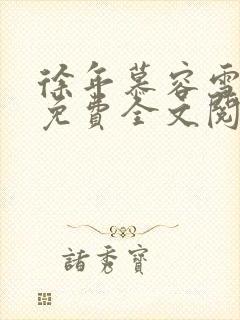 徐年慕容雪
免費全文閱
諸秀寶